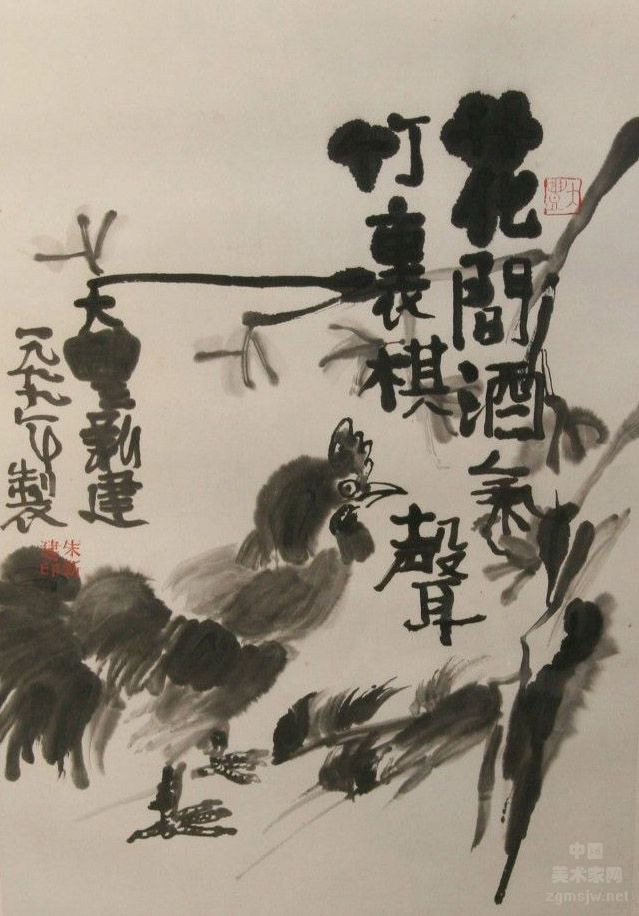 花間酒氣
竹裏棋聲
大豐新建
一九九年製
朱新
建印
中国
美术家网
zgmsjw.net